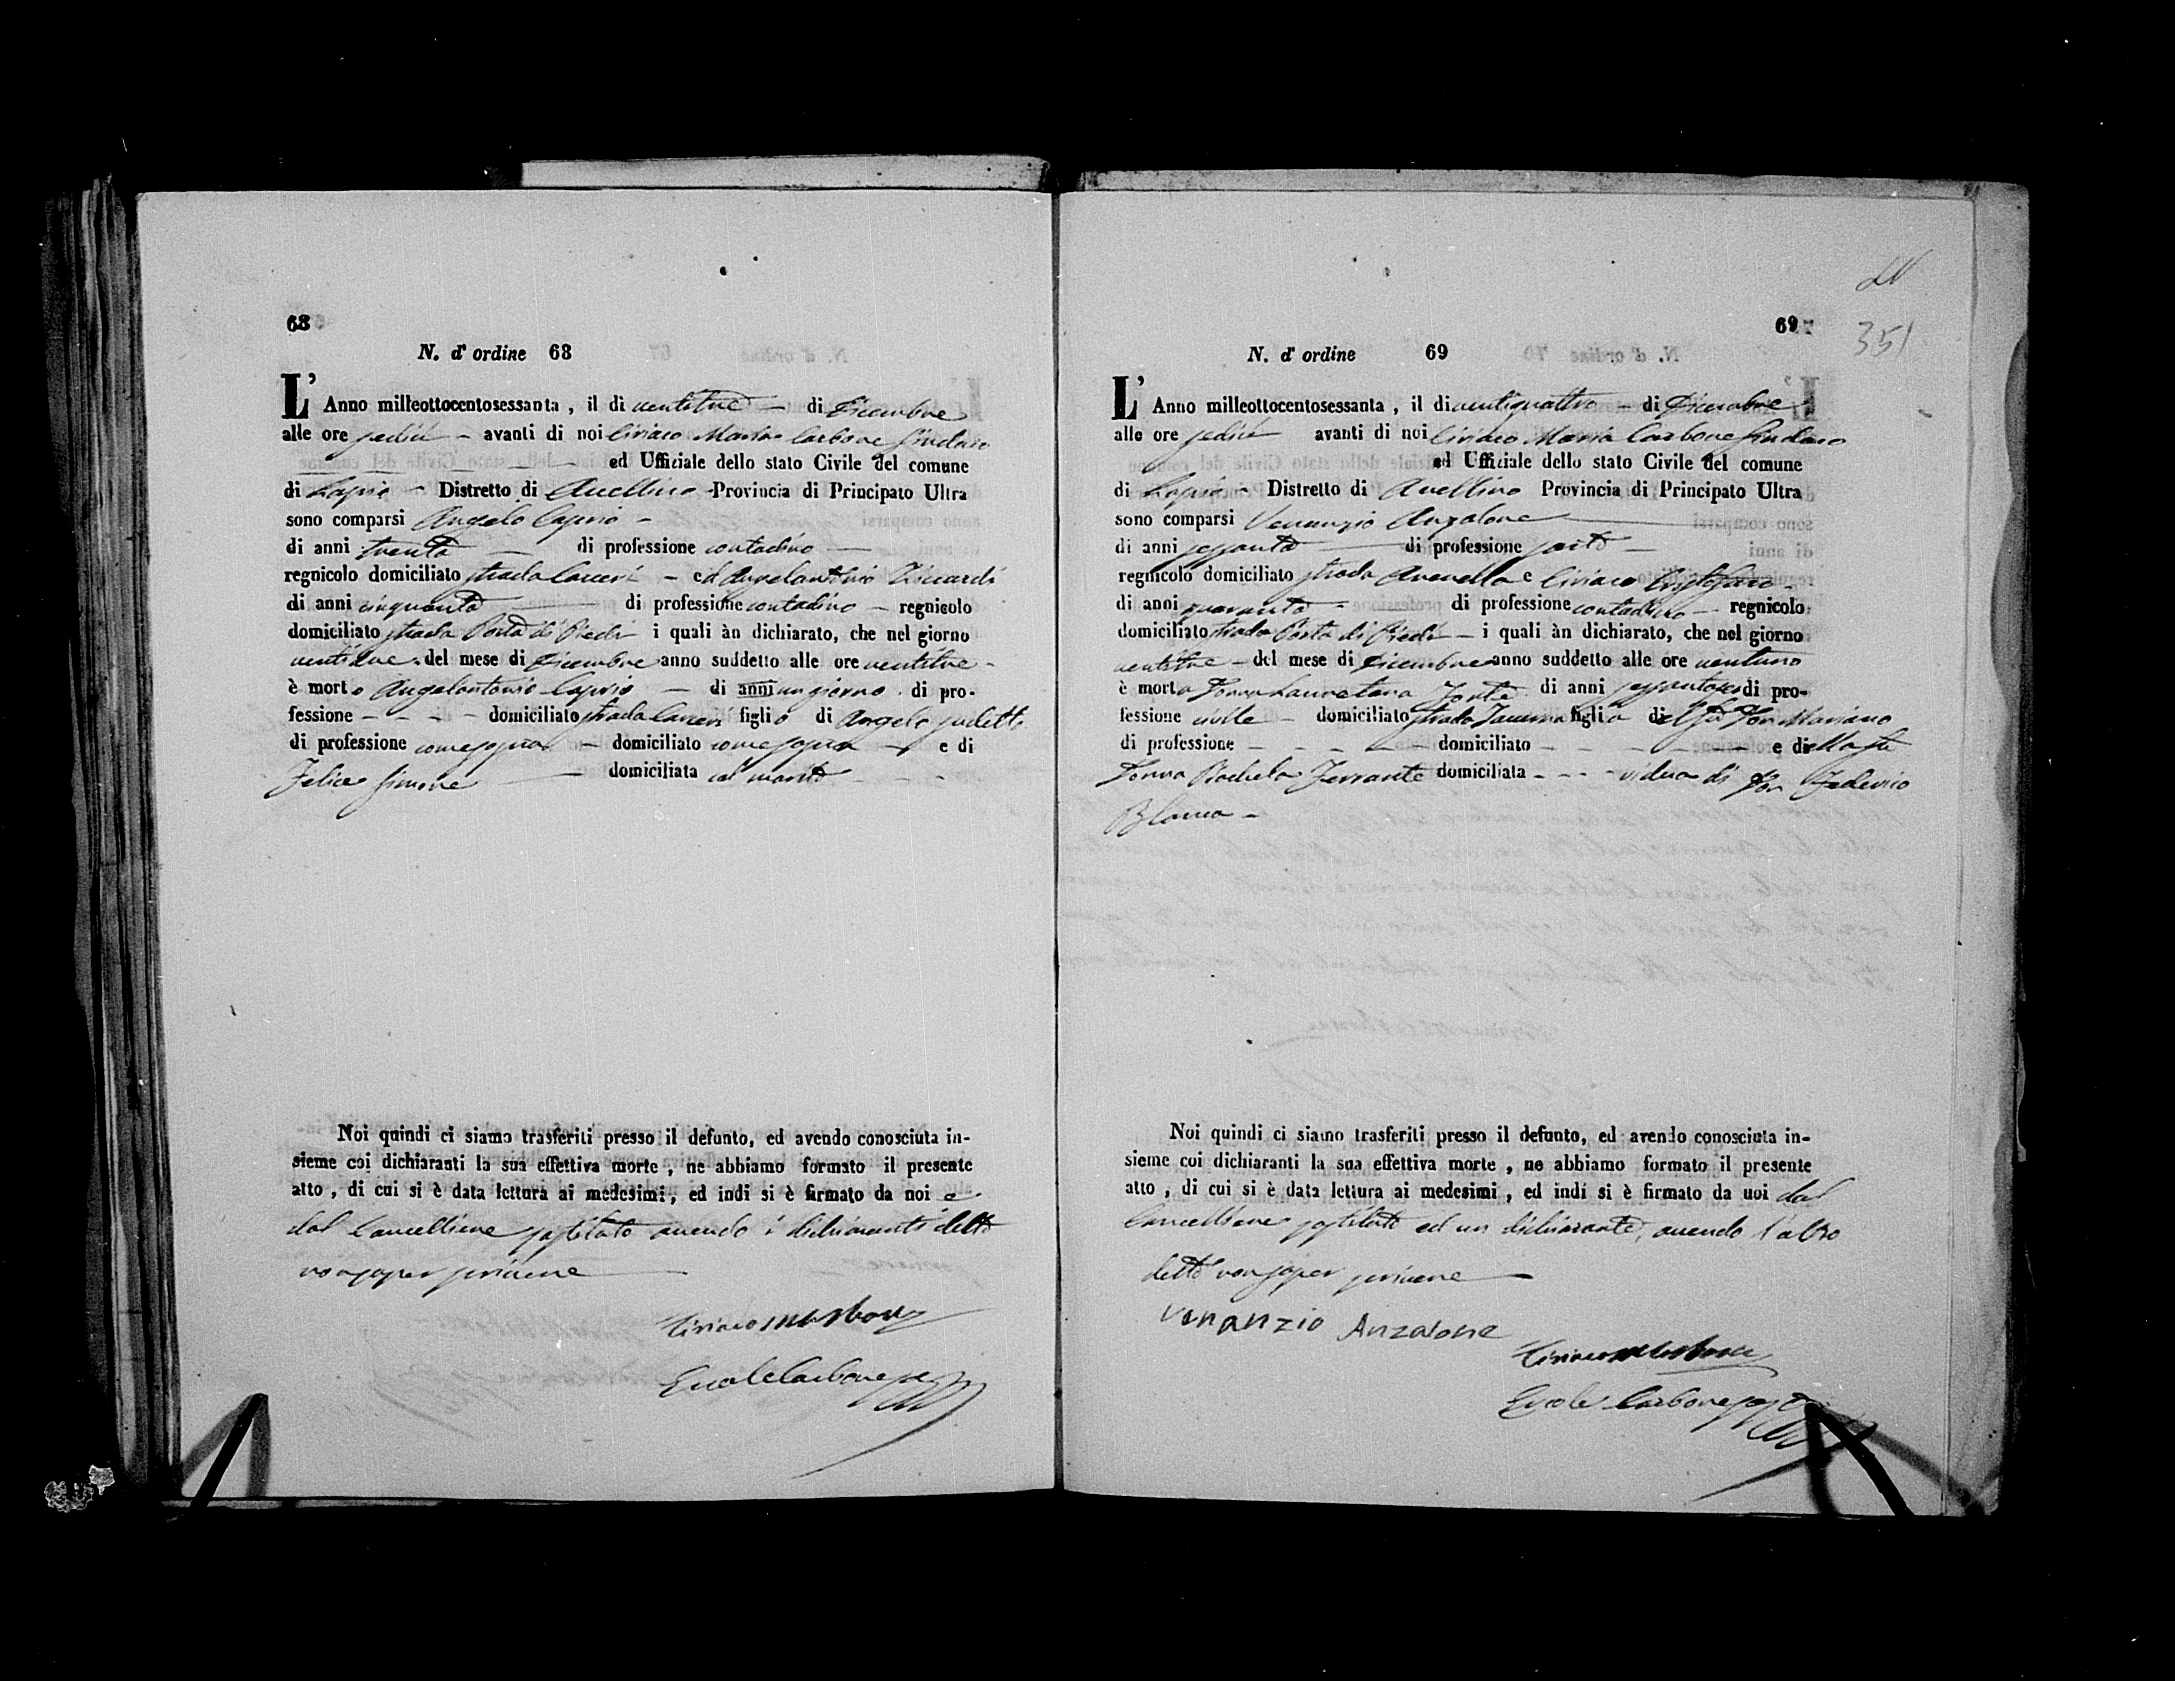 68
N. d' ordine 68
L' Anno milleottocentosessanta, il di ventitre — di Dicembre
alle ore sedici — avanti di noi Ciriaco Maria Carbone Sindaco
ed Uffiziale dello stato Civile del comune
di Lapio — Distretto di Avellino Provincia di Principato Ultra
sono comparsi Angelo Caprio —
di anni trenta — di professione contadino —
regnicolo domiciliato strada Carceri — ed Angelantonio Ziccardi
di anni cinquanta — di professione contadino — regnicolo
domiciliato strada Porta di Piedi i quali àn dichiarato, che nel giorno
ventidue del mese di Dicembre anno suddetto alle ore ventitre —
è morto Angelantonio Caprio — di anni un giorno di pro-
fessione - - - - domiciliato strada Carceri figlio di Angelo sudetto
di professione come sopra — domiciliato come sopra — e di
Felice Simone — domiciliata col marito - - -
Noi quindi ci siamo trasferiti presso il defunto, ed avendo conosciuta in-
sieme coi dichiaranti la sua effettiva morte, ne abbiamo formato il presente
atto, di cui si è data lettura ai medesimi, ed indi si è firmato da noi e
dal Cancelliere sostituto avendo i dichiaranti detto
non saper scrivere —
Ciriaco M Carbone
Ercole Carbone
69
351
N. d' ordine 69
L' Anno milleottocentosessanta, il di ventiquattro — di Dicembre
alle ore sedici avanti di noi Ciriaco Maria Carbone Sindaco
ed Uffiziale dello stato Civile del comune
di Lapio — Distretto di Avellino Provincia di Principato Ultra
sono comparsi Venanzio Anzalone —
di anni sessanta — di professione sarto —
regnicolo domiciliato strada e Ciriaco Cristofaro
di anni quaranta — di professione contadino — regnicolo
domiciliato strada Porta di Piedi — i quali àn dichiarato, che nel giorno
ventitre — del mese di Dicembre anno suddetto alle ore ventuno
è morta Donna Lauretana di anni di pro-
fessione civile — domiciliato strada Taverna figlia del fu Don Mariano
di professione - - - - domiciliato - - - - e di fu
Donna Rachela Ferrante domiciliata - - - vidua di Don Federico
Blanco —
Noi quindi ci siamo trasferiti presso il defunto, ed avendo conosciuta in-
sieme coi dichiaranti la sua effettiva morte, ne abbiamo formato il presente
atto, di cui si è data lettura ai medesimi, ed indi si è firmato da noi dal
Cancelliere sostituto ed un dichiarante, avendo l'altro
detto non saper scrivere —
Venanzio Anzalone
Ciriaco M Carbone
Ercole Carbone